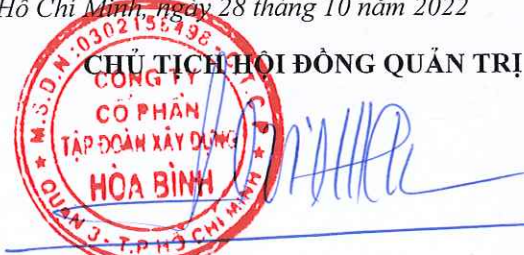 Hồ Chí Minh, ngày 28 tháng 10 năm 2022
CHỦ TỊCH HỘI ĐỒNG QUẢN TRỊ
M.S.D.N:0302158498-C.T.C.P
CÔNG TY
CỔ PHẦN
TẬP ĐOÀN XÂY DỰNG
HÒA BÌNH
QUẬN 3 - T.P HỒ CHÍ MINH